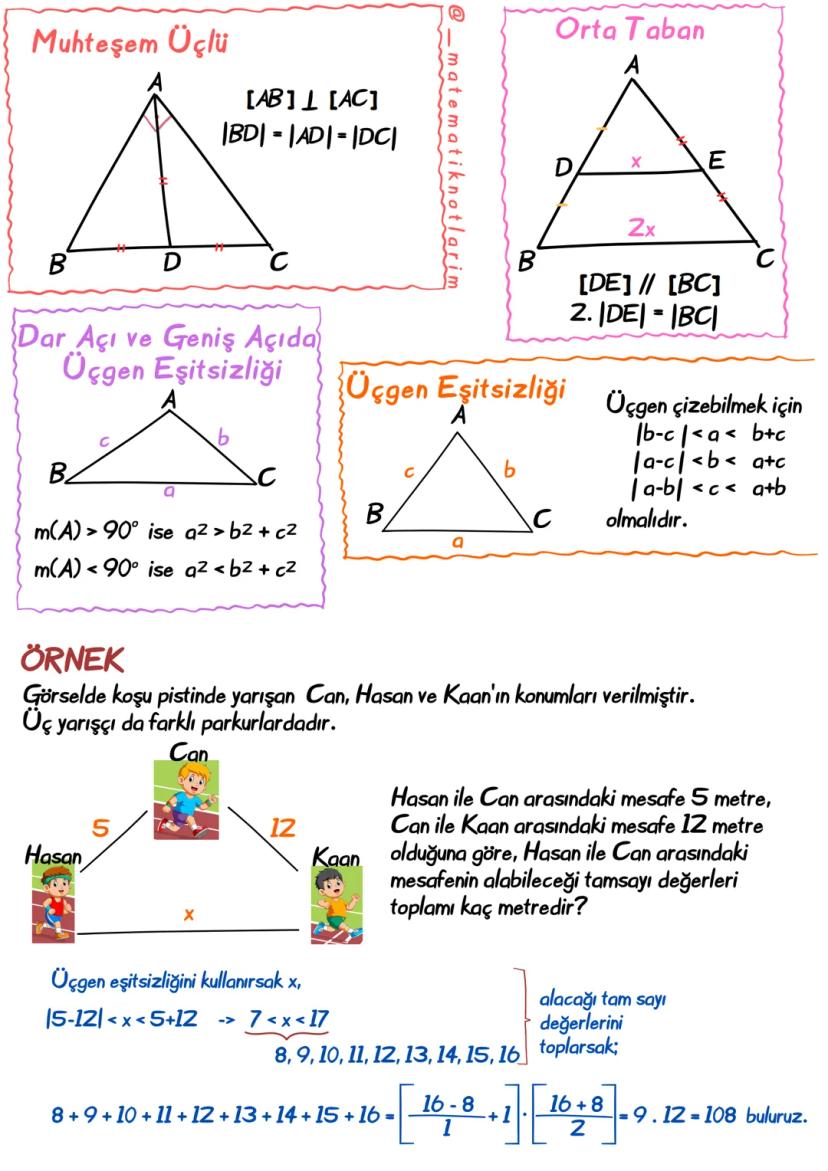 Muhteşem Üçlü
A
[AB] ⊥ [AC]
|BD| = |AD| = |DC|
B
D
C
@_matematiknotlarim
Orta Taban
A
D
x
E
2x
B
C
[DE] // [BC]
2. |DE| = |BC|
Dar Açı ve Geniş Açıda
Üçgen Eşitsizliği
A
c
b
B
C
a
m(A) > 90° ise a2 > b2 + c2
m(A) < 90° ise a2 < b2 + c2
Üçgen Eşitsizliği
A
c
b
B
C
a
Üçgen çizebilmek için
|b-c| < a < b+c
|a-c| < b < a+c
|a-b| < c < a+b
olmalıdır.
ÖRNEK
Görselde koşu pistinde yarışan Can, Hasan ve Kaan'ın konumları verilmiştir.
Üç yarışçı da farklı parkurlardadır.
Can
5
12
Hasan
Kaan
x
Hasan ile Can arasındaki mesafe 5 metre,
Can ile Kaan arasındaki mesafe 12 metre
olduğuna göre, Hasan ile Can arasındaki
mesafenin alabileceği tamsayı değerleri
toplamı kaç metredir?
Üçgen eşitsizliğini kullanırsak x,
|5-12| < x < 5+12 -> 7 < x < 17
8, 9, 10, 11, 12, 13, 14, 15, 16
alacağı tam sayı
değerlerini
toplarsak;
8 + 9 + 10 + 11 + 12 + 13 + 14 + 15 + 16 = [(16 - 8)/1 + 1] · [(16 + 8)/2] = 9 . 12 = 108 buluruz.